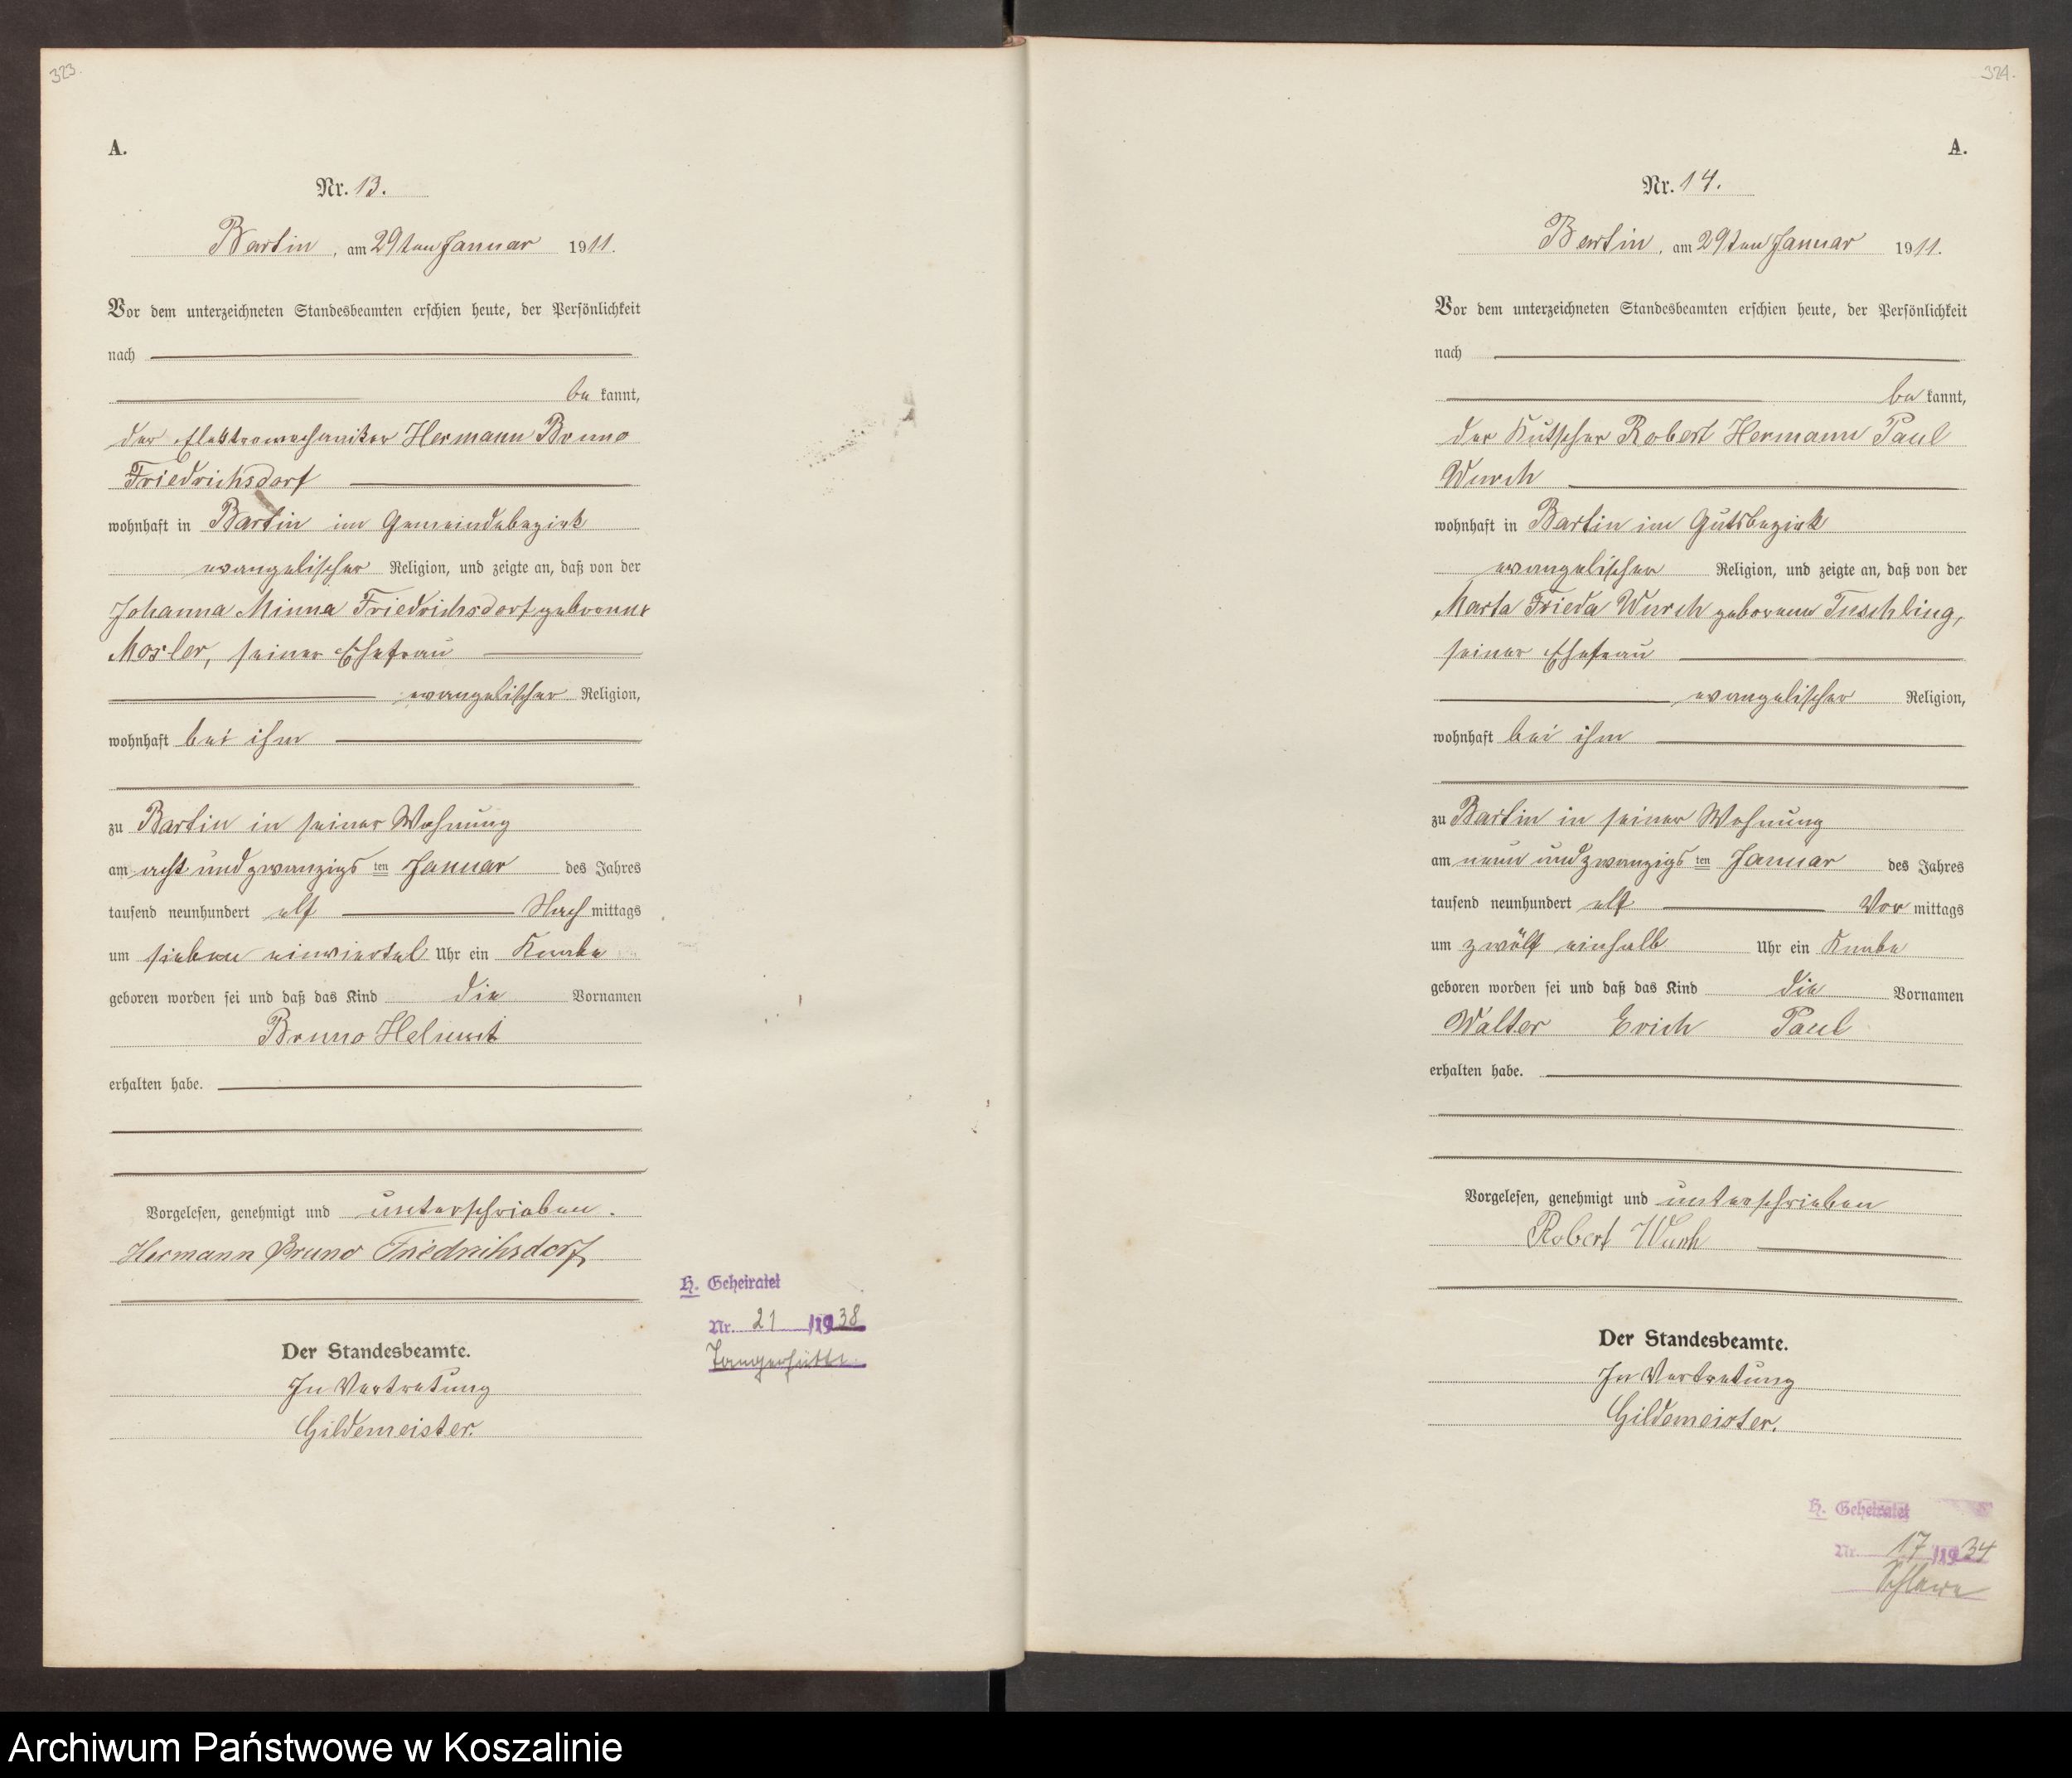 323.
A.
Nr. 13.
Bartin, am 29ten Januar 1911.
Vor dem unterzeichneten Standesbeamten erschien heute, der Persönlichkeit
nach
be kannt,
der Elektromechaniker Hermann Bruno
Friedrichsdorf
wohnhaft in Bartin im Gemeindebezirk
evangelischer Religion, und zeigte an, daß von der
Johanna Minna Friedrichsdorf geborene
Mosler, seiner Ehefrau
evangelischer Religion,
wohnhaft bei ihm
zu Bartin in seiner Wohnung
am acht und zwanzigs ten Januar des Jahres
tausend neunhundert elf Nach mittags
um sieben einviertel Uhr ein Knabe
geboren worden sei und daß das Kind die Vornamen
Bruno Helmut
erhalten habe.
Vorgelesen, genehmigt und unterschrieben.
Hermann Bruno Friedrichsdorf
Der Standesbeamte.
In Vertretung
Gildemeister.
H. Geheiratet
Nr. 21 /1938
Tangerhütte
324.
A.
Nr. 14.
Bartin, am 29ten Januar 1911.
Vor dem unterzeichneten Standesbeamten erschien heute, der Persönlichkeit
nach
be kannt,
der Kutscher Robert Hermann Paul
Wurch
wohnhaft in Bartin im Gutsbezirk
evangelischer Religion, und zeigte an, daß von der
Marta Frieda Wurch geborene Tuschling,
seiner Ehefrau
evangelischer Religion,
wohnhaft bei ihm
zu Bartin in seiner Wohnung
am neun und zwanzigs ten Januar des Jahres
tausend neunhundert elf Vor mittags
um zwölf einhalb Uhr ein Knabe
geboren worden sei und daß das Kind die Vornamen
Walter Erich Paul
erhalten habe.
Vorgelesen, genehmigt und unterschrieben
Robert Wurch
Der Standesbeamte.
In Vertretung
Gildemeister.
H. Geheiratet
Nr. 17 /1934
Schlawe
Archiwum Państwowe w Koszalinie